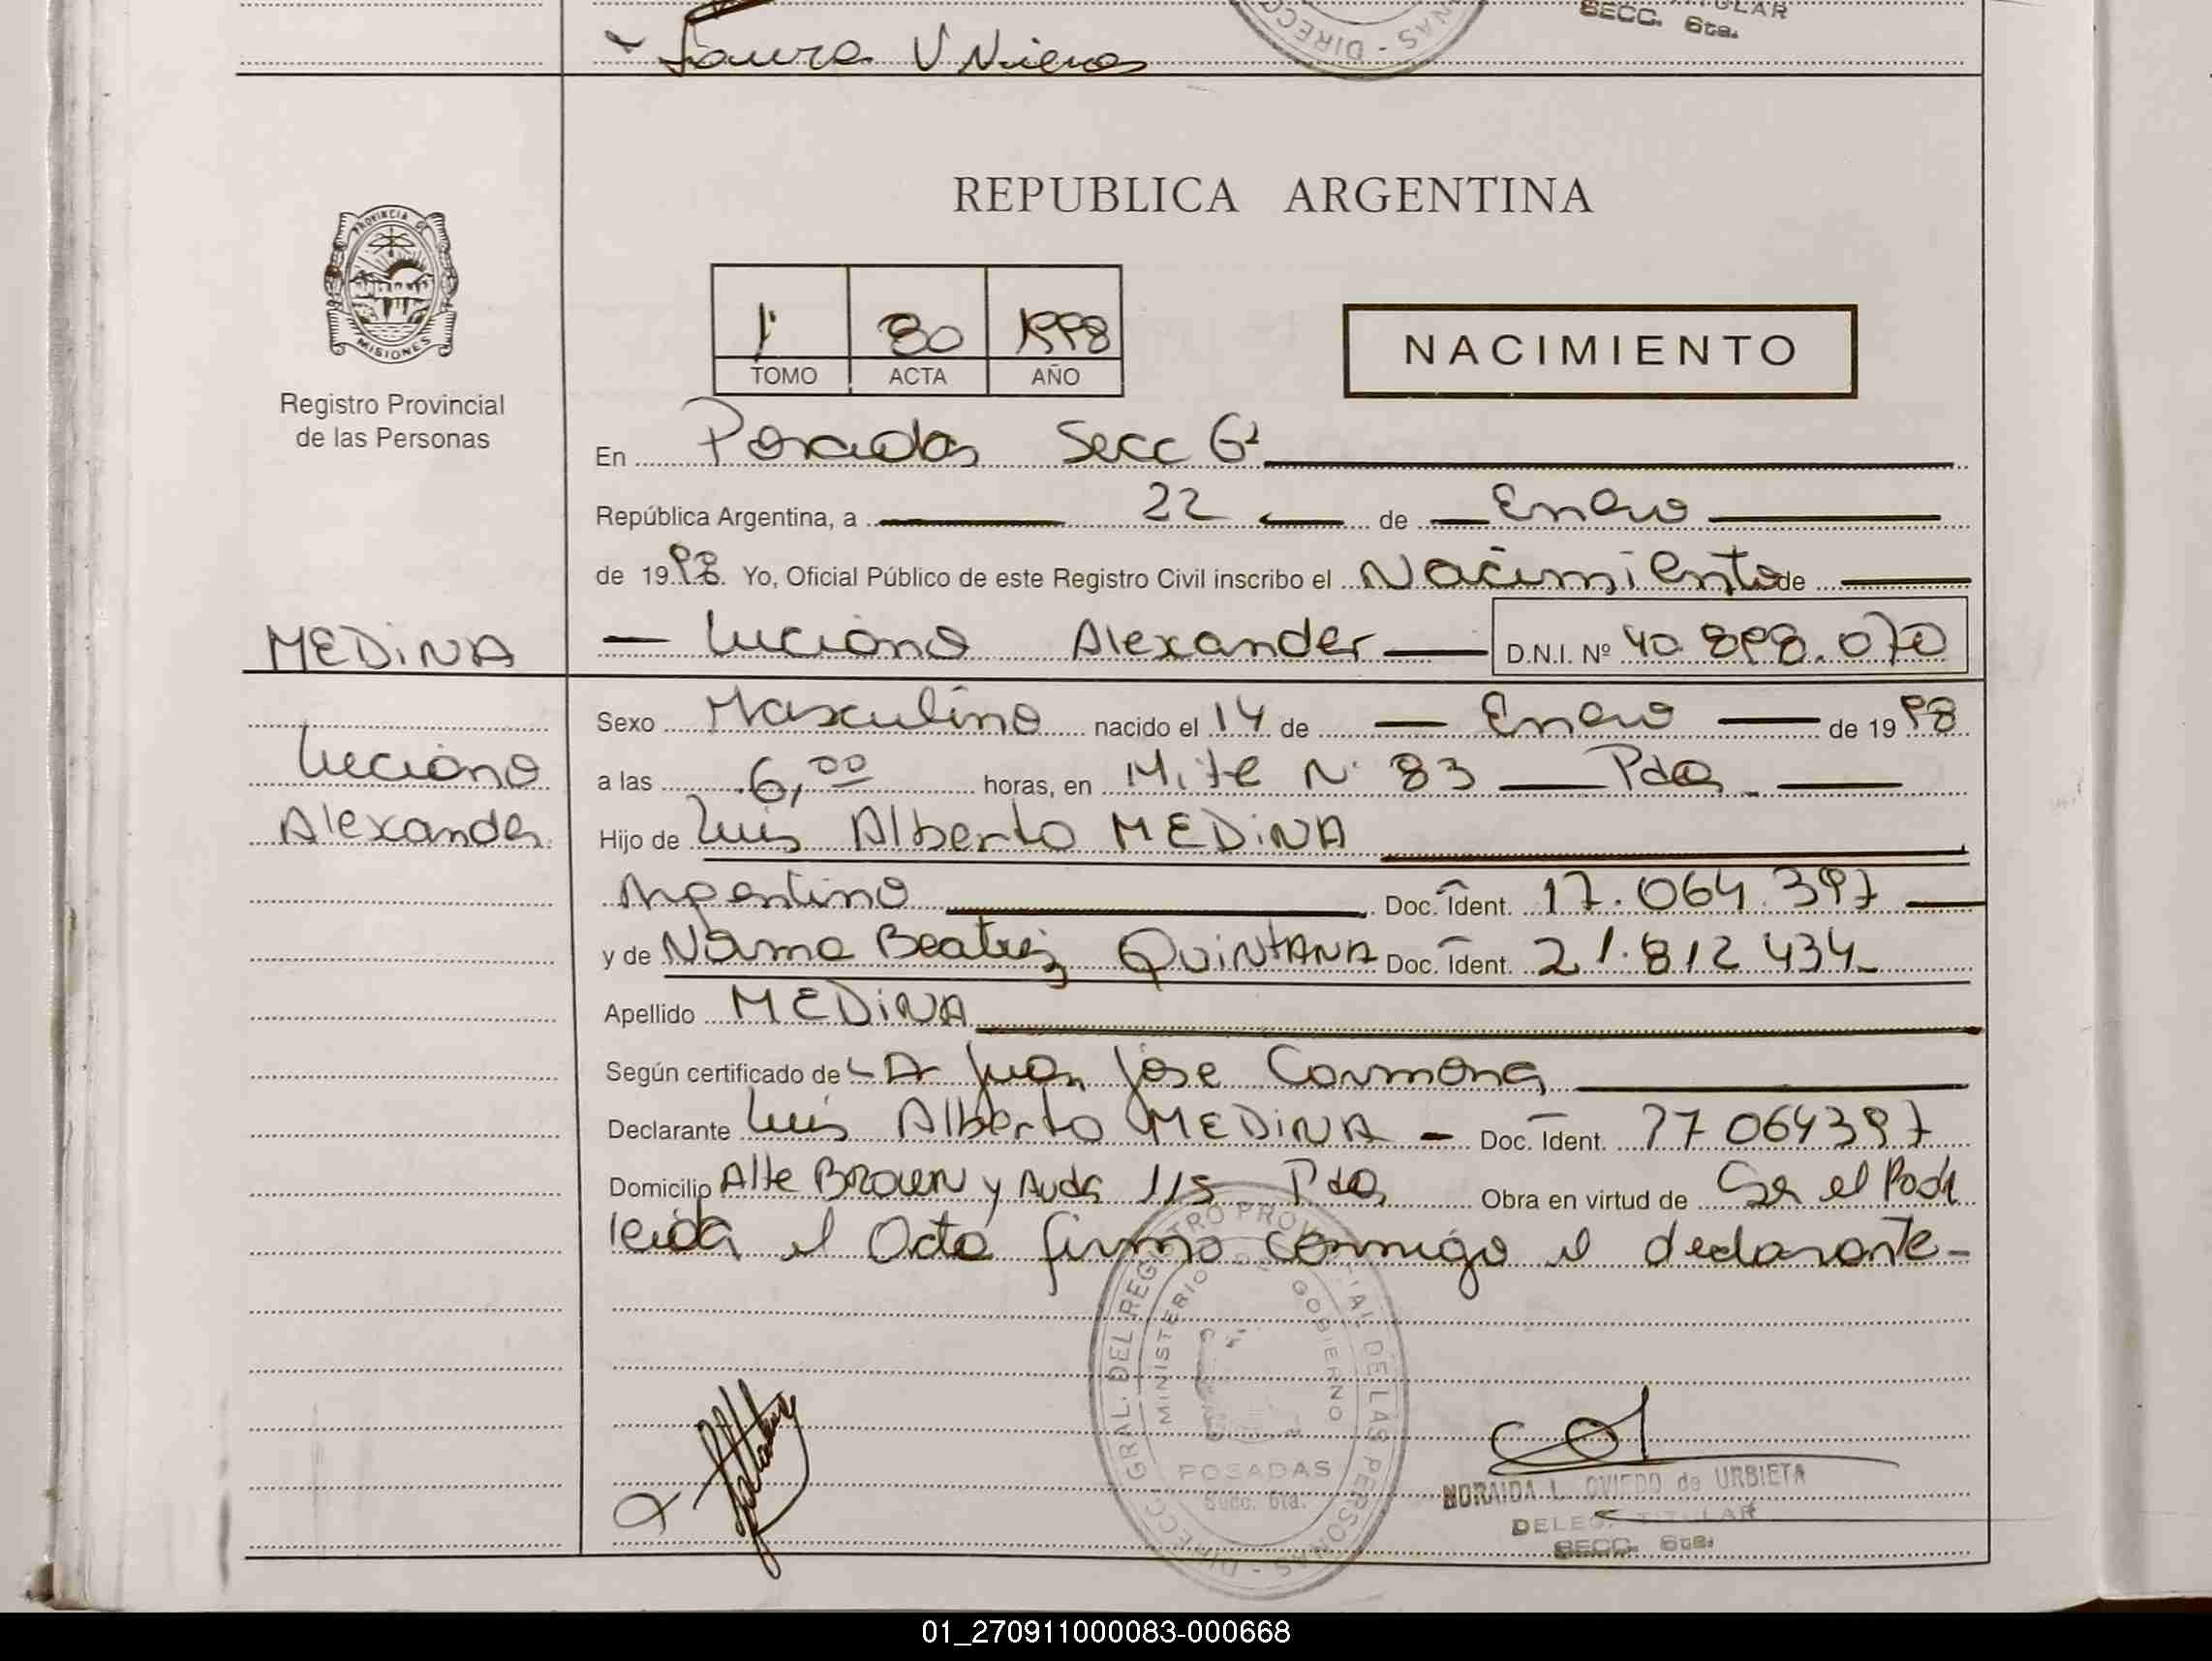 Laura V Nieves
SECC. 6ta.
DIRECC
NAS
REPUBLICA ARGENTINA
PROVINCIA DE
MISIONES
Registro Provincial
de las Personas
1° 80 1998
TOMO ACTA AÑO
NACIMIENTO
En Posadas Secc 6ª
República Argentina, a 22 de Enero
de 1998. Yo, Oficial Público de este Registro Civil inscribo el Nacimiento de
MEDINA
Luciano Alexander D.N.I. Nº 40 898.070
Sexo Masculino nacido el 14 de Enero de 1998
Luciano
a las 6,00 horas, en Mitre N° 83 Pdas
Alexander
Hijo de Luis Alberto MEDINA
Argentino Doc. Ident. 17.064.397
y de Norma Beatriz QUINTANA Doc. Ident. 21.812 434
Apellido MEDINA
Según certificado de Juan Jose Carmona
Declarante Luis Alberto MEDINA - Doc. Ident. 17 064397
Domicilio Alte BROWN y Avda 115 Pdas Obra en virtud de Ser el Padre
leida el Acta firma conmigo el declarante-
DIRECC. GRAL. DEL REGISTRO PROVINCIAL DE LAS PERSONAS
MINISTERIO DE GOBIERNO
POSADAS
Secc. 6ta.
NORAIDA L. OVIEDO de URBIETA
DELEG. TITULAR
SECC. 6ta.
01_270911000083-000668